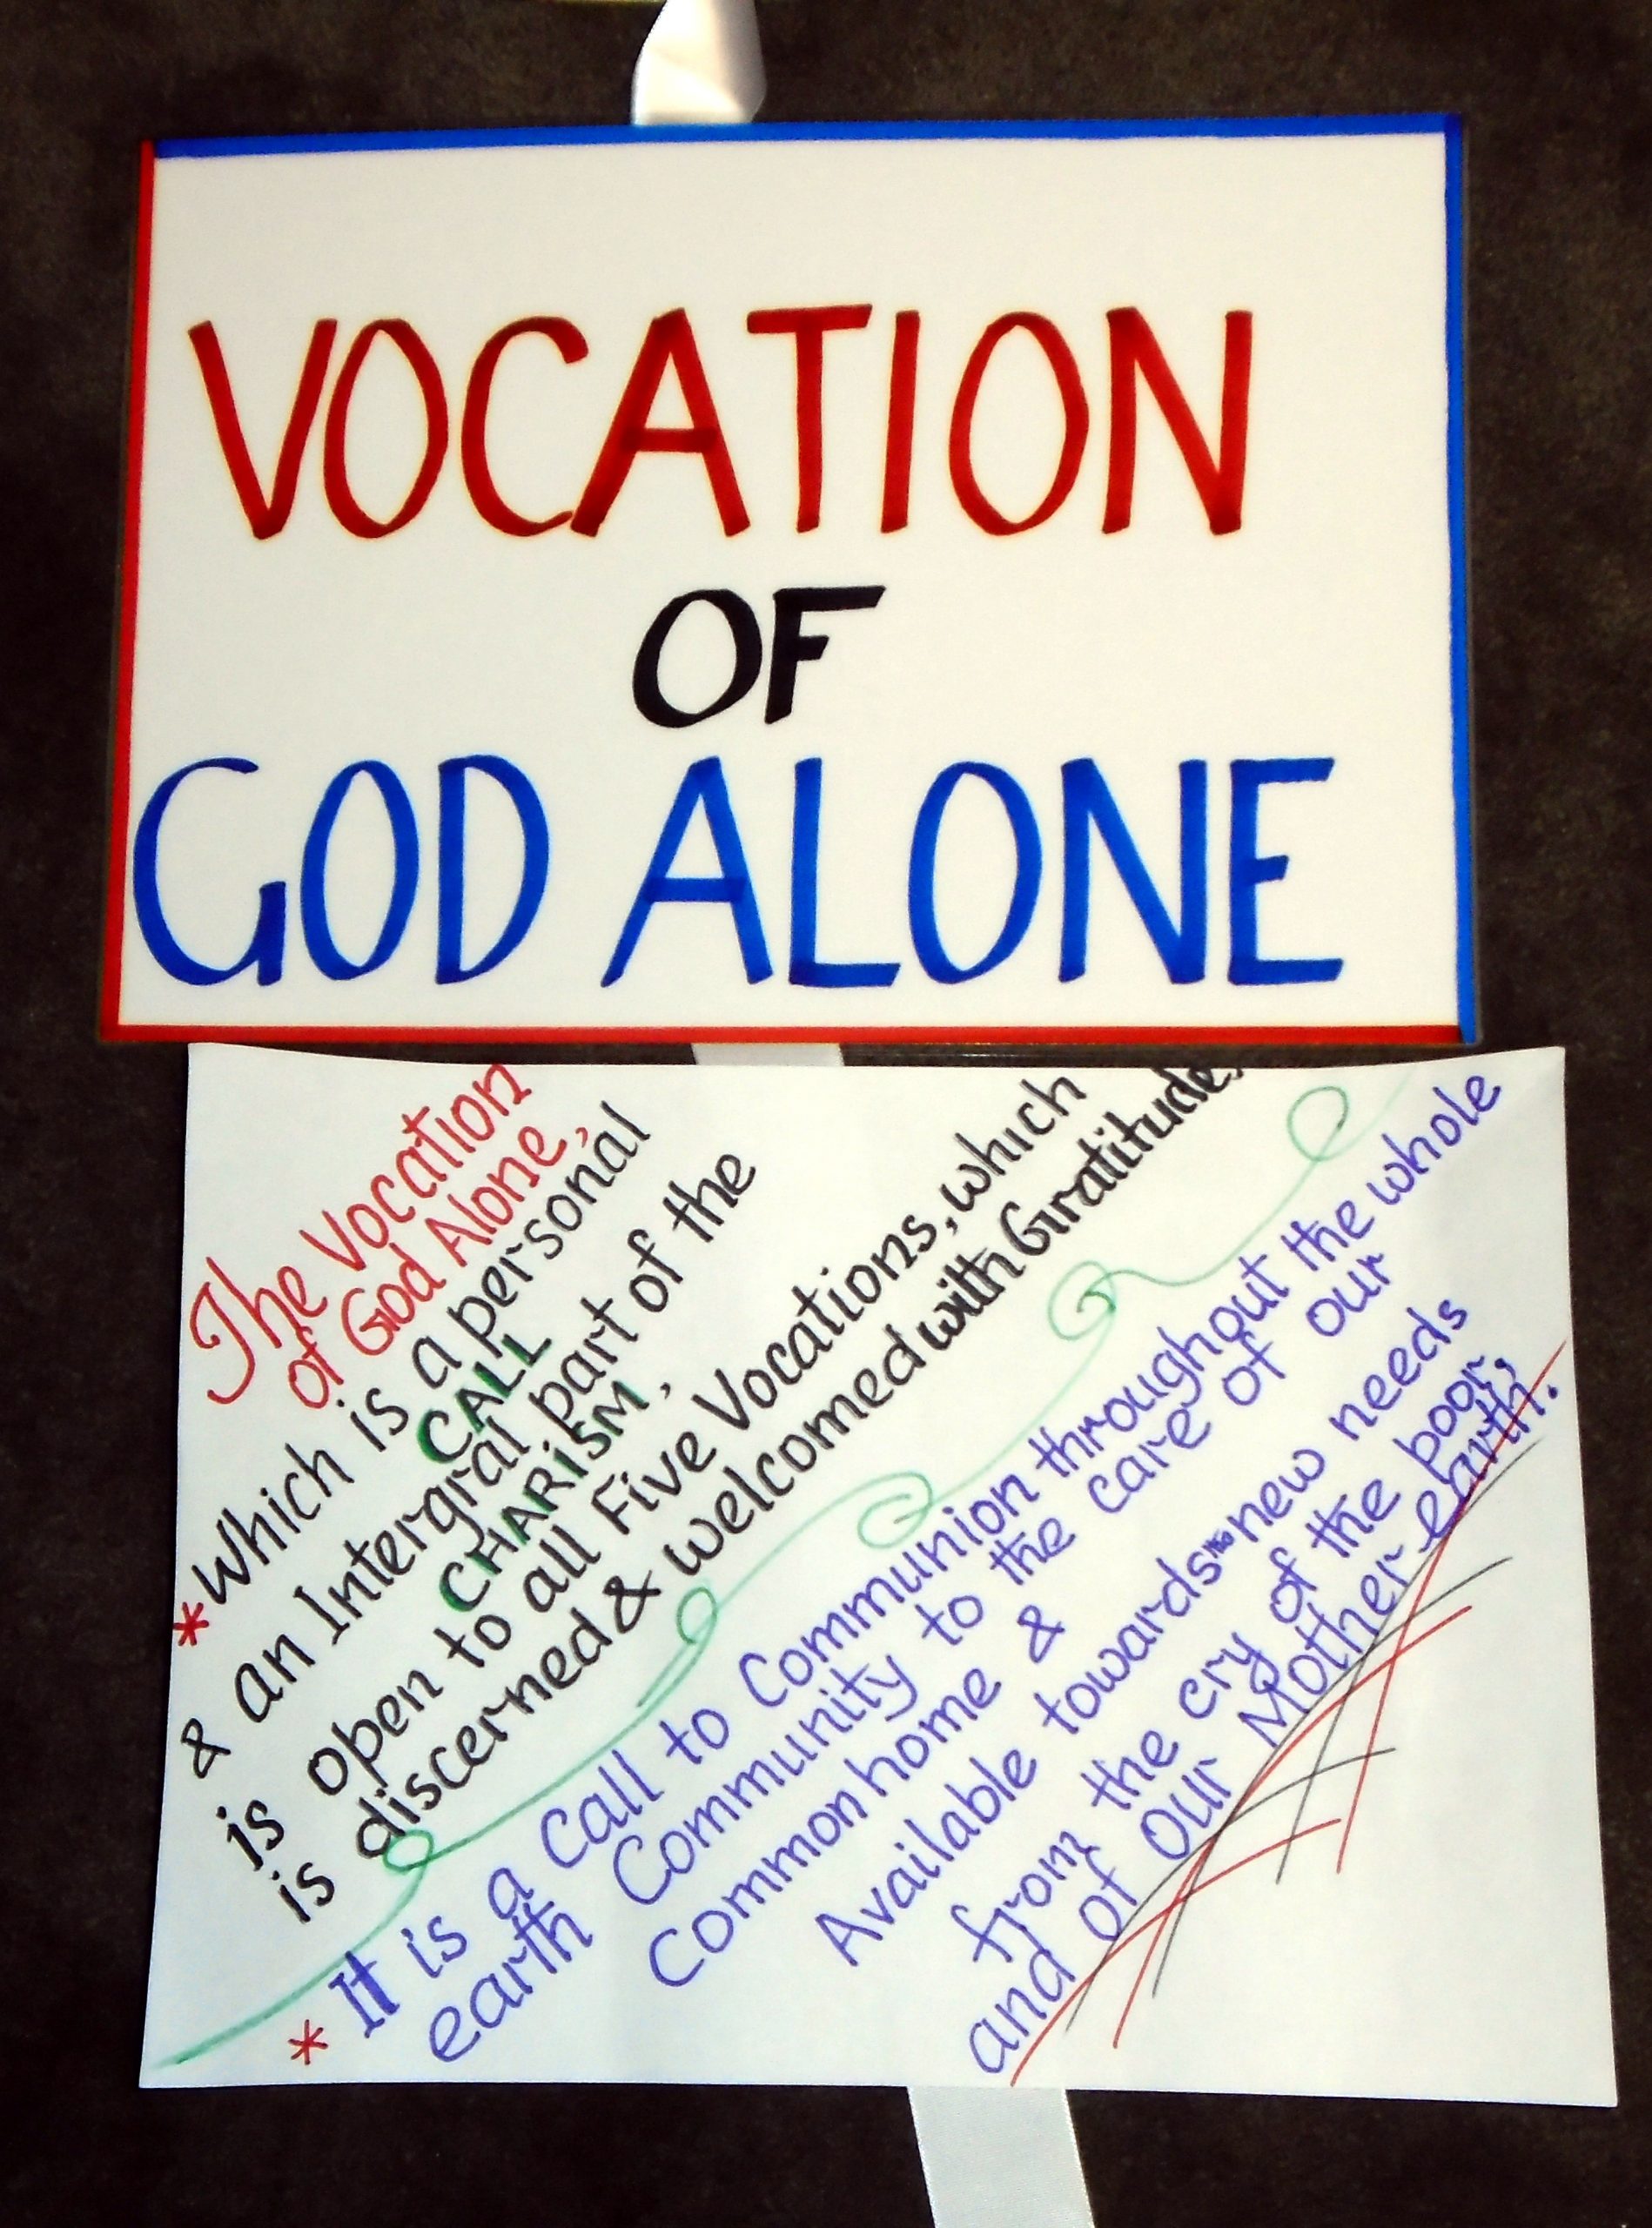 VOCATION
OF
GOD ALONE
The Vocation
of God Alone,
*Which is a personal
CALL
& an Intergral part of the
CHARISM,
is open to all Five Vocations, which
is discerned & welcomed with Gratitude,
* It is a Call to Communion throughout the whole
earth Community to the care of our
Common home &
Available towards new needs
from the cry of the poor,
and of Our Mother earth.